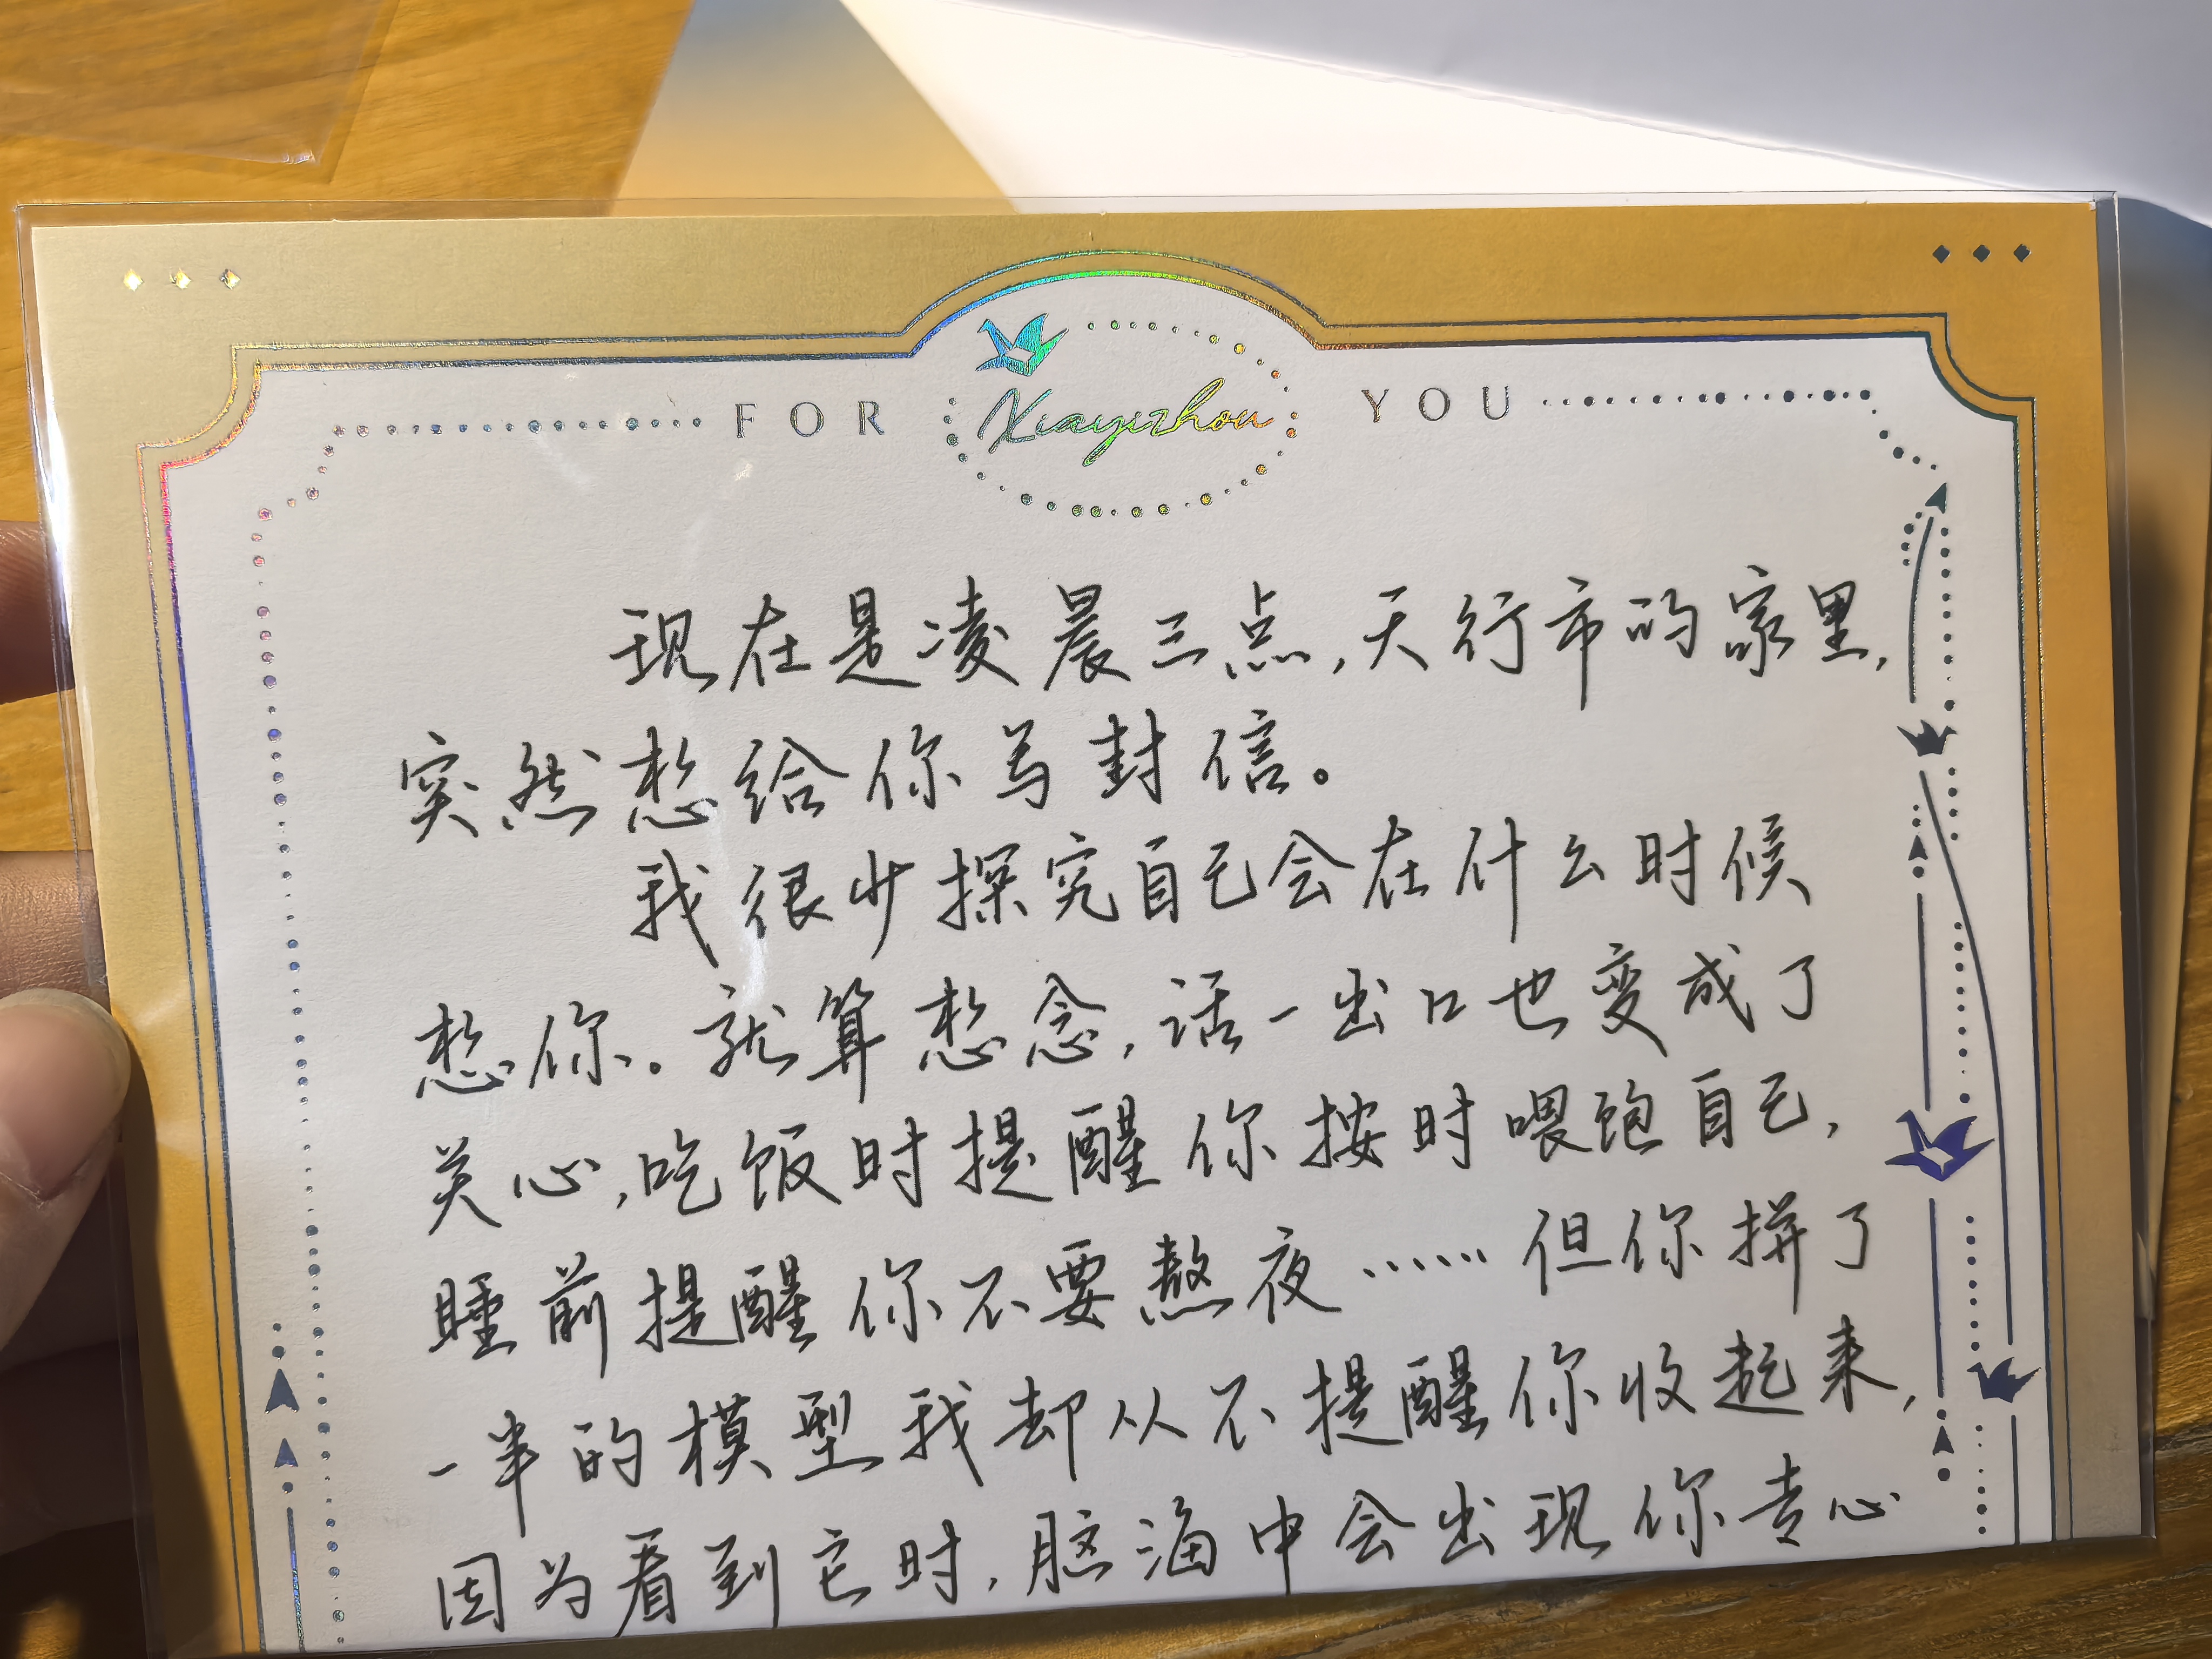 FOR Xiayizhou YOU
现在是凌晨三点,天行市的家里,
突然想给你写封信。
我很少探究自己会在什么时候
想你。就算想念,话一出口也变成了
关心,吃饭时提醒你按时喂饱自己,
睡前提醒你不要熬夜……但你拼了
一半的模型我却从不提醒你收起来,
因为看到它时,脑海中会出现你专心